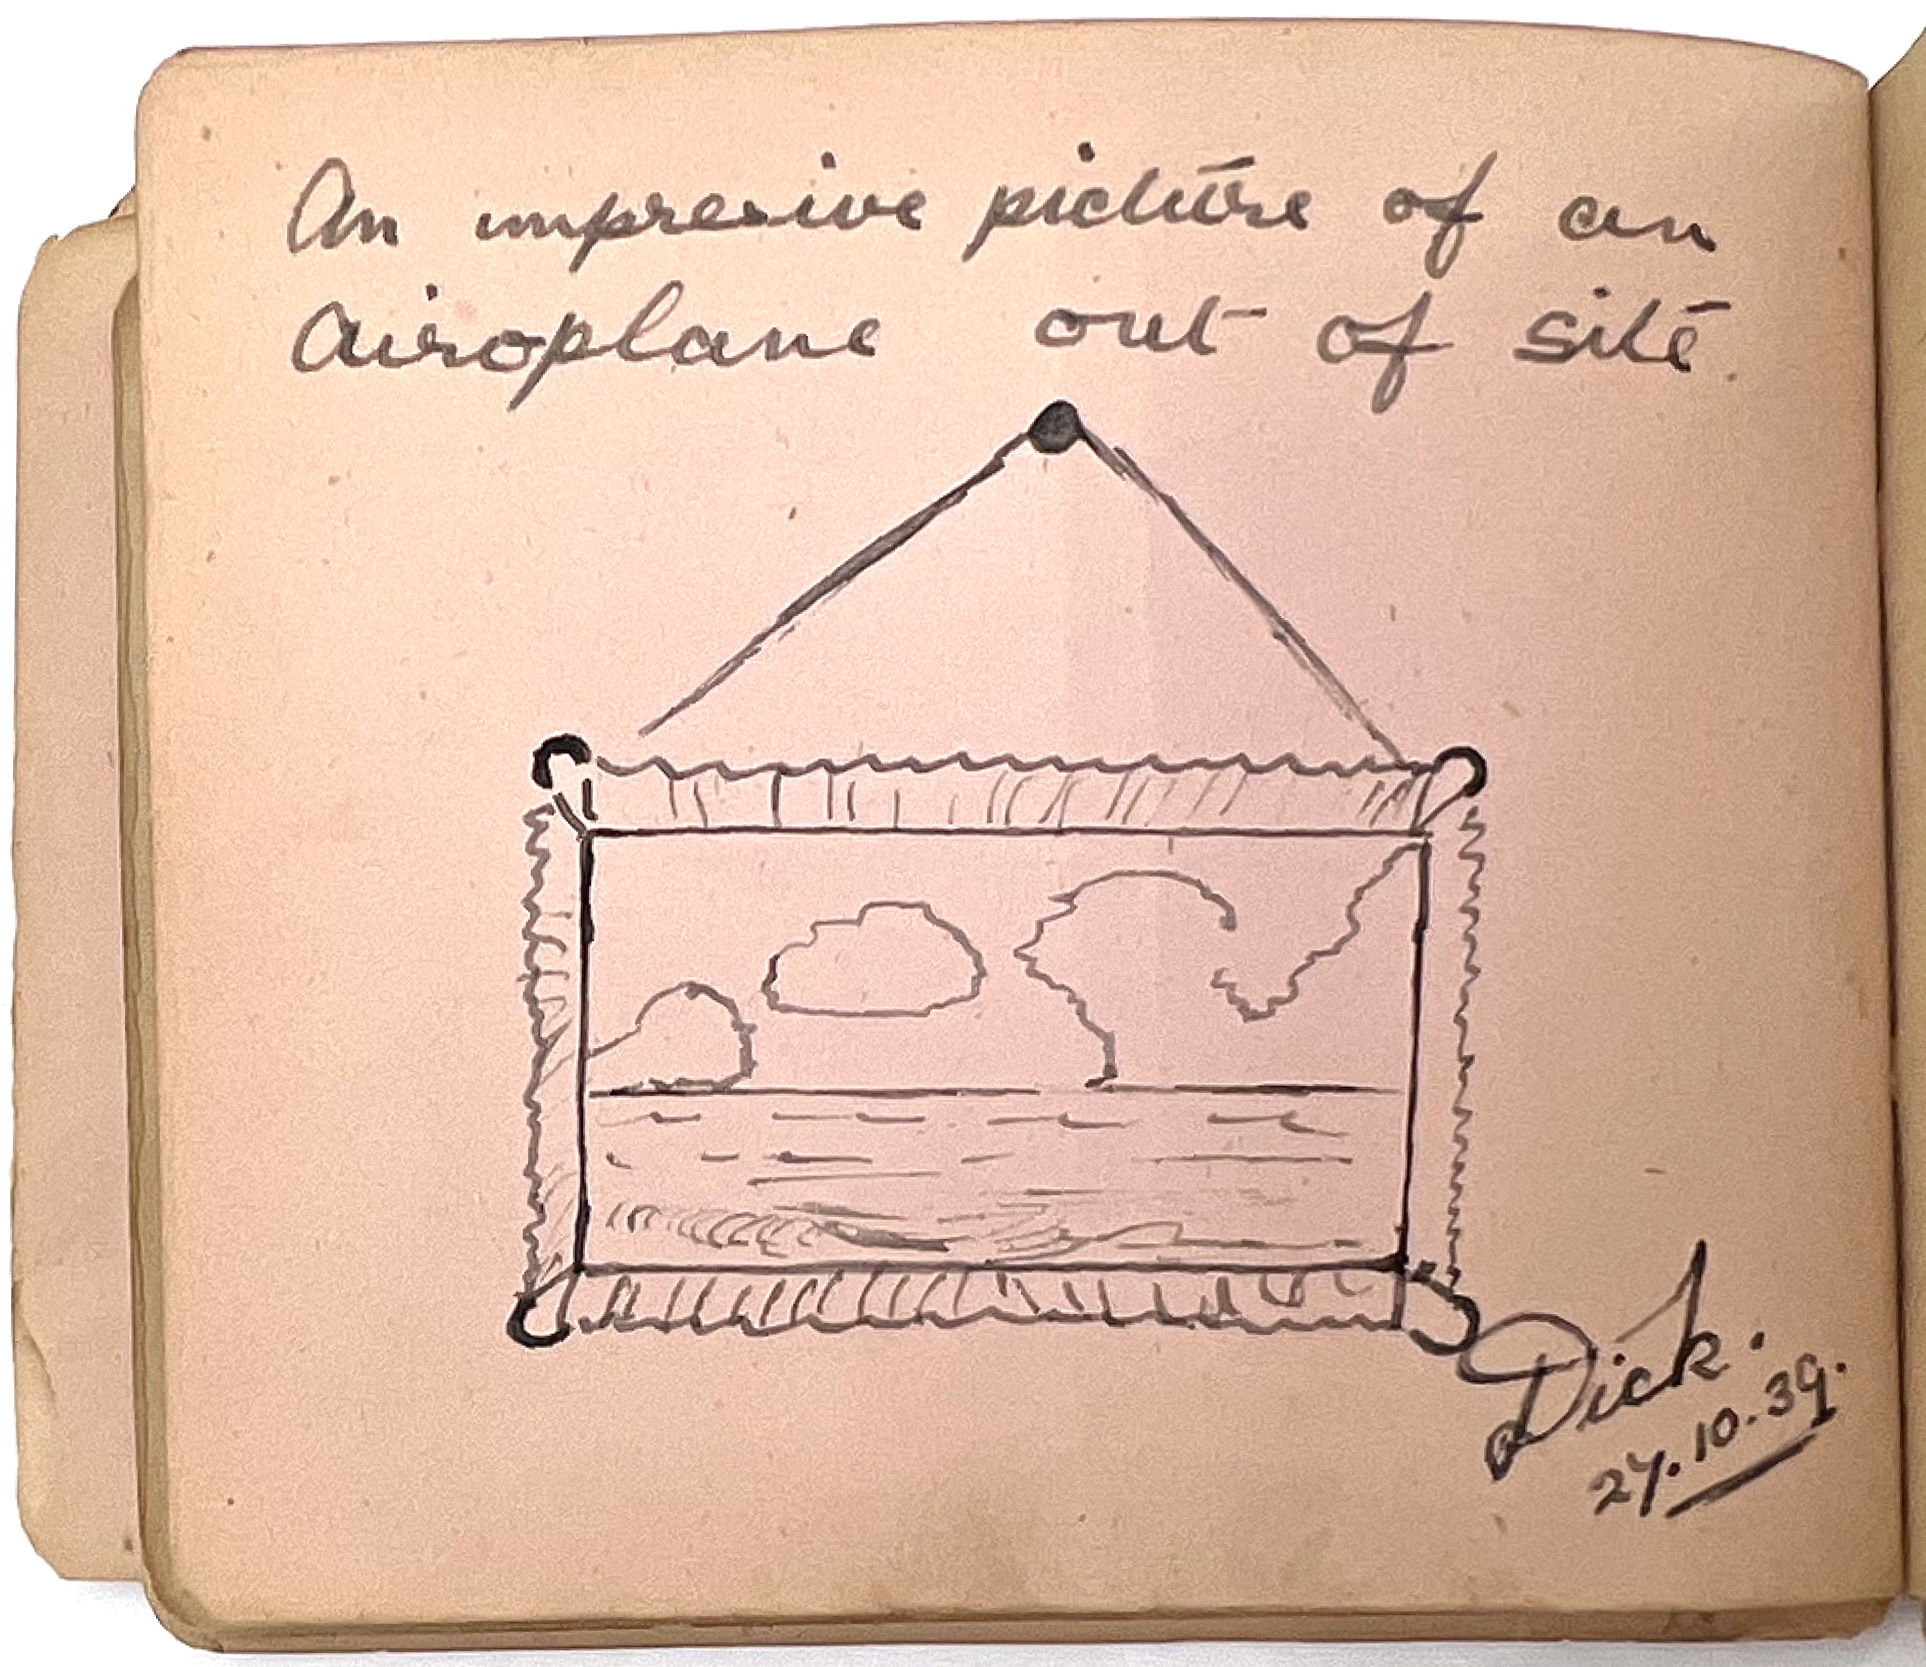 An impresive picture of an
airoplane out of site
Dick.
27.10.39.